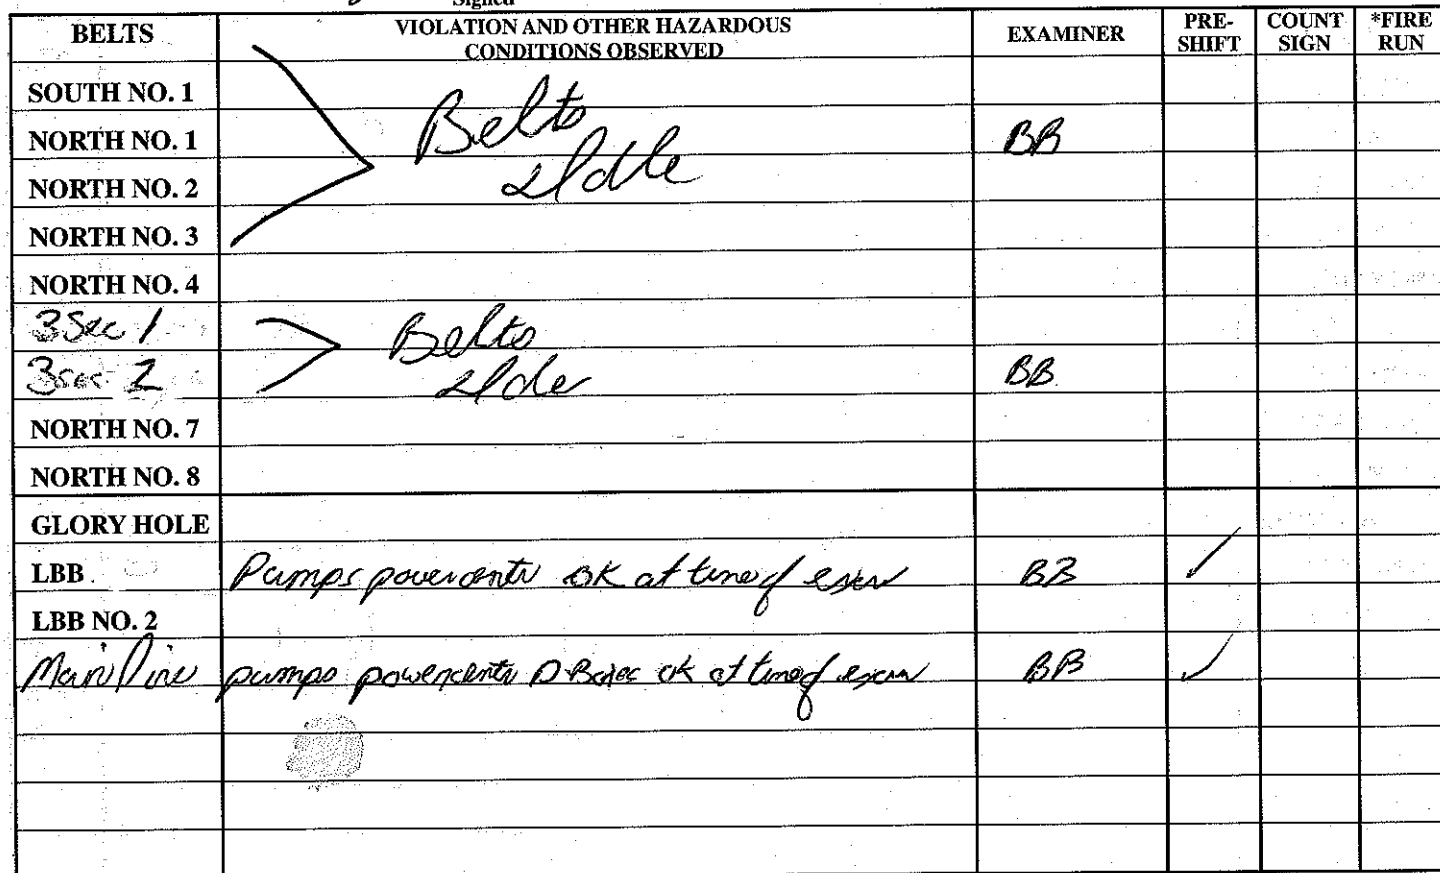 Signed
BELTS VIOLATION AND OTHER HAZARDOUS CONDITIONS OBSERVED EXAMINER PRE-SHIFT COUNT SIGN *FIRE RUN
SOUTH NO. 1
Belts
NORTH NO. 1 BB
Idle
NORTH NO. 2
NORTH NO. 3
NORTH NO. 4
3 Sec 1 Belts
3 sec 2 Idle BB
NORTH NO. 7
NORTH NO. 8
GLORY HOLE
LBB Pumps OK at time of BB ✓
LBB NO. 2
Main line pumps ok at time of BB ✓